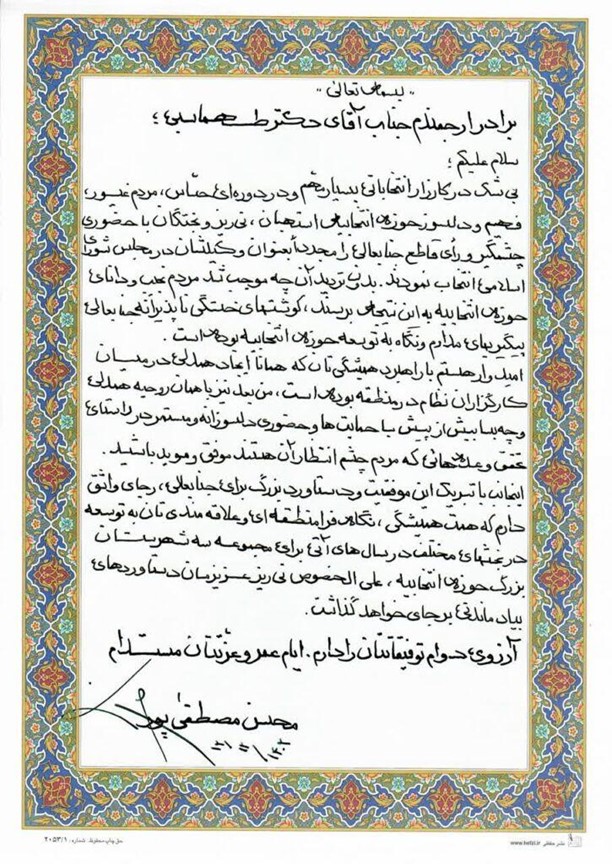 "بسمه تعالی"
برادر ارجمندم جناب آقای دکتر طهماسبی؛
سلام علیکم؛
بی شک در کارزار انتخاباتی بسیار مهم و در دوره‌ای حساس، مردم غیور،
فهیم و دلسوز حوزه انتخابیه استهبان، نی ریز و بختگان با حضوری
چشمگیر و رأی قاطع جنابعالی را مجدداً بعنوان وکیلشان در مجلس شورای
اسلامی انتخاب نمودند. بدون تردید آن چه موجب شد مردم نجیب و دانای
حوزه انتخابیه به این نتیجه برسند، کوششهای خستگی ناپذیرانه جنابعالی
پیگیریهای مدام و نگاه به توسعه حوزه انتخابیه بوده است.
امیدوار هستم با راهبرد همیشگی تان که همانا ایجاد همدلی در میان
کارگزاران نظام در منطقه بوده است، من بعد نیز با همان روحیه همدلی
و چه بسا بیش از پیش با حمایت ها و حضوری دلسوزانه و مستمر در راستای
تحقق وعده هائی که مردم چشم انتظار آن هستند موفق و موید باشید.
اینجانب با تبریک این موفقیت و دستاورد بزرگ برای جنابعالی، رجای واثق
دارم که همت همیشگی، نگاه فرامنطقه ای و علاقه مندی تان به توسعه
در بخشهای مختلف در سال های آتی برای مجموعه سه شهرستان
بزرگ حوزه انتخابیه، علی الخصوص نی ریز عزیزمان دستاوردهای
بیاد ماندنی برجای خواهد گذاشت.
آرزوی دوام توفیقاتتان را دارم. ایام عمر و عزتتان مستدام
محسن مصطفی پور
حق چاپ محفوظ. شماره: ۲۰۵۳/۹
www.hefzi.ir